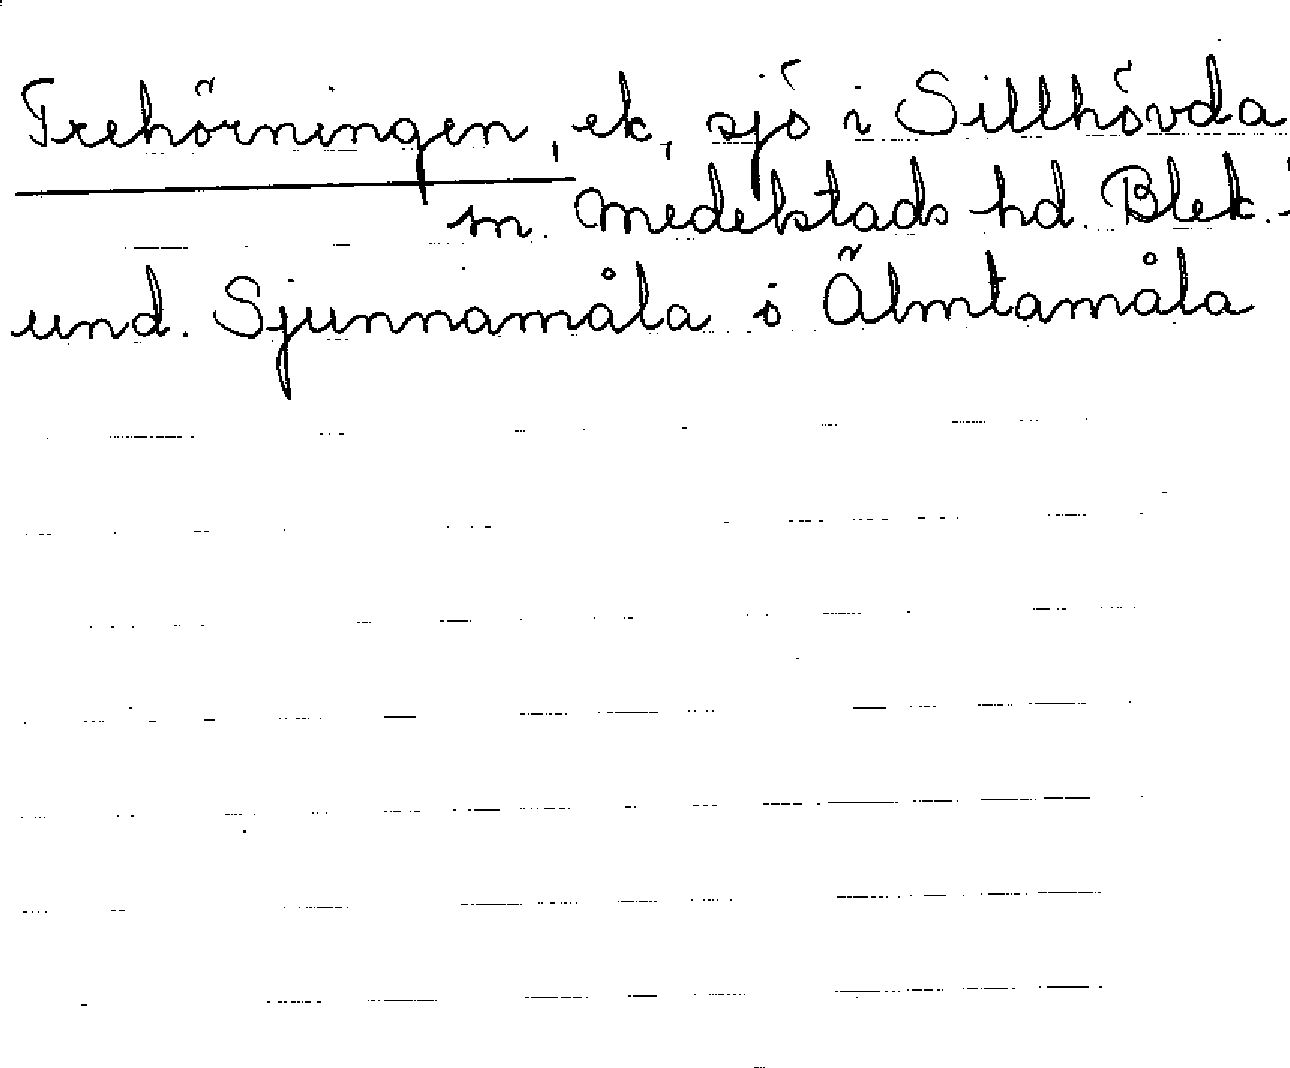 Trehörningen, ek, sjö i Sillhövda
sn. Medelstads hd. Blek.
und. Sjunnamåla o Älmtamåla